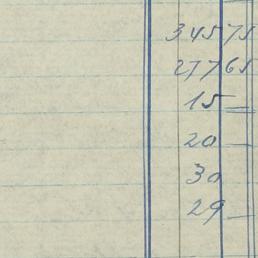 345 75
277 65
15 —
20
30
29 —